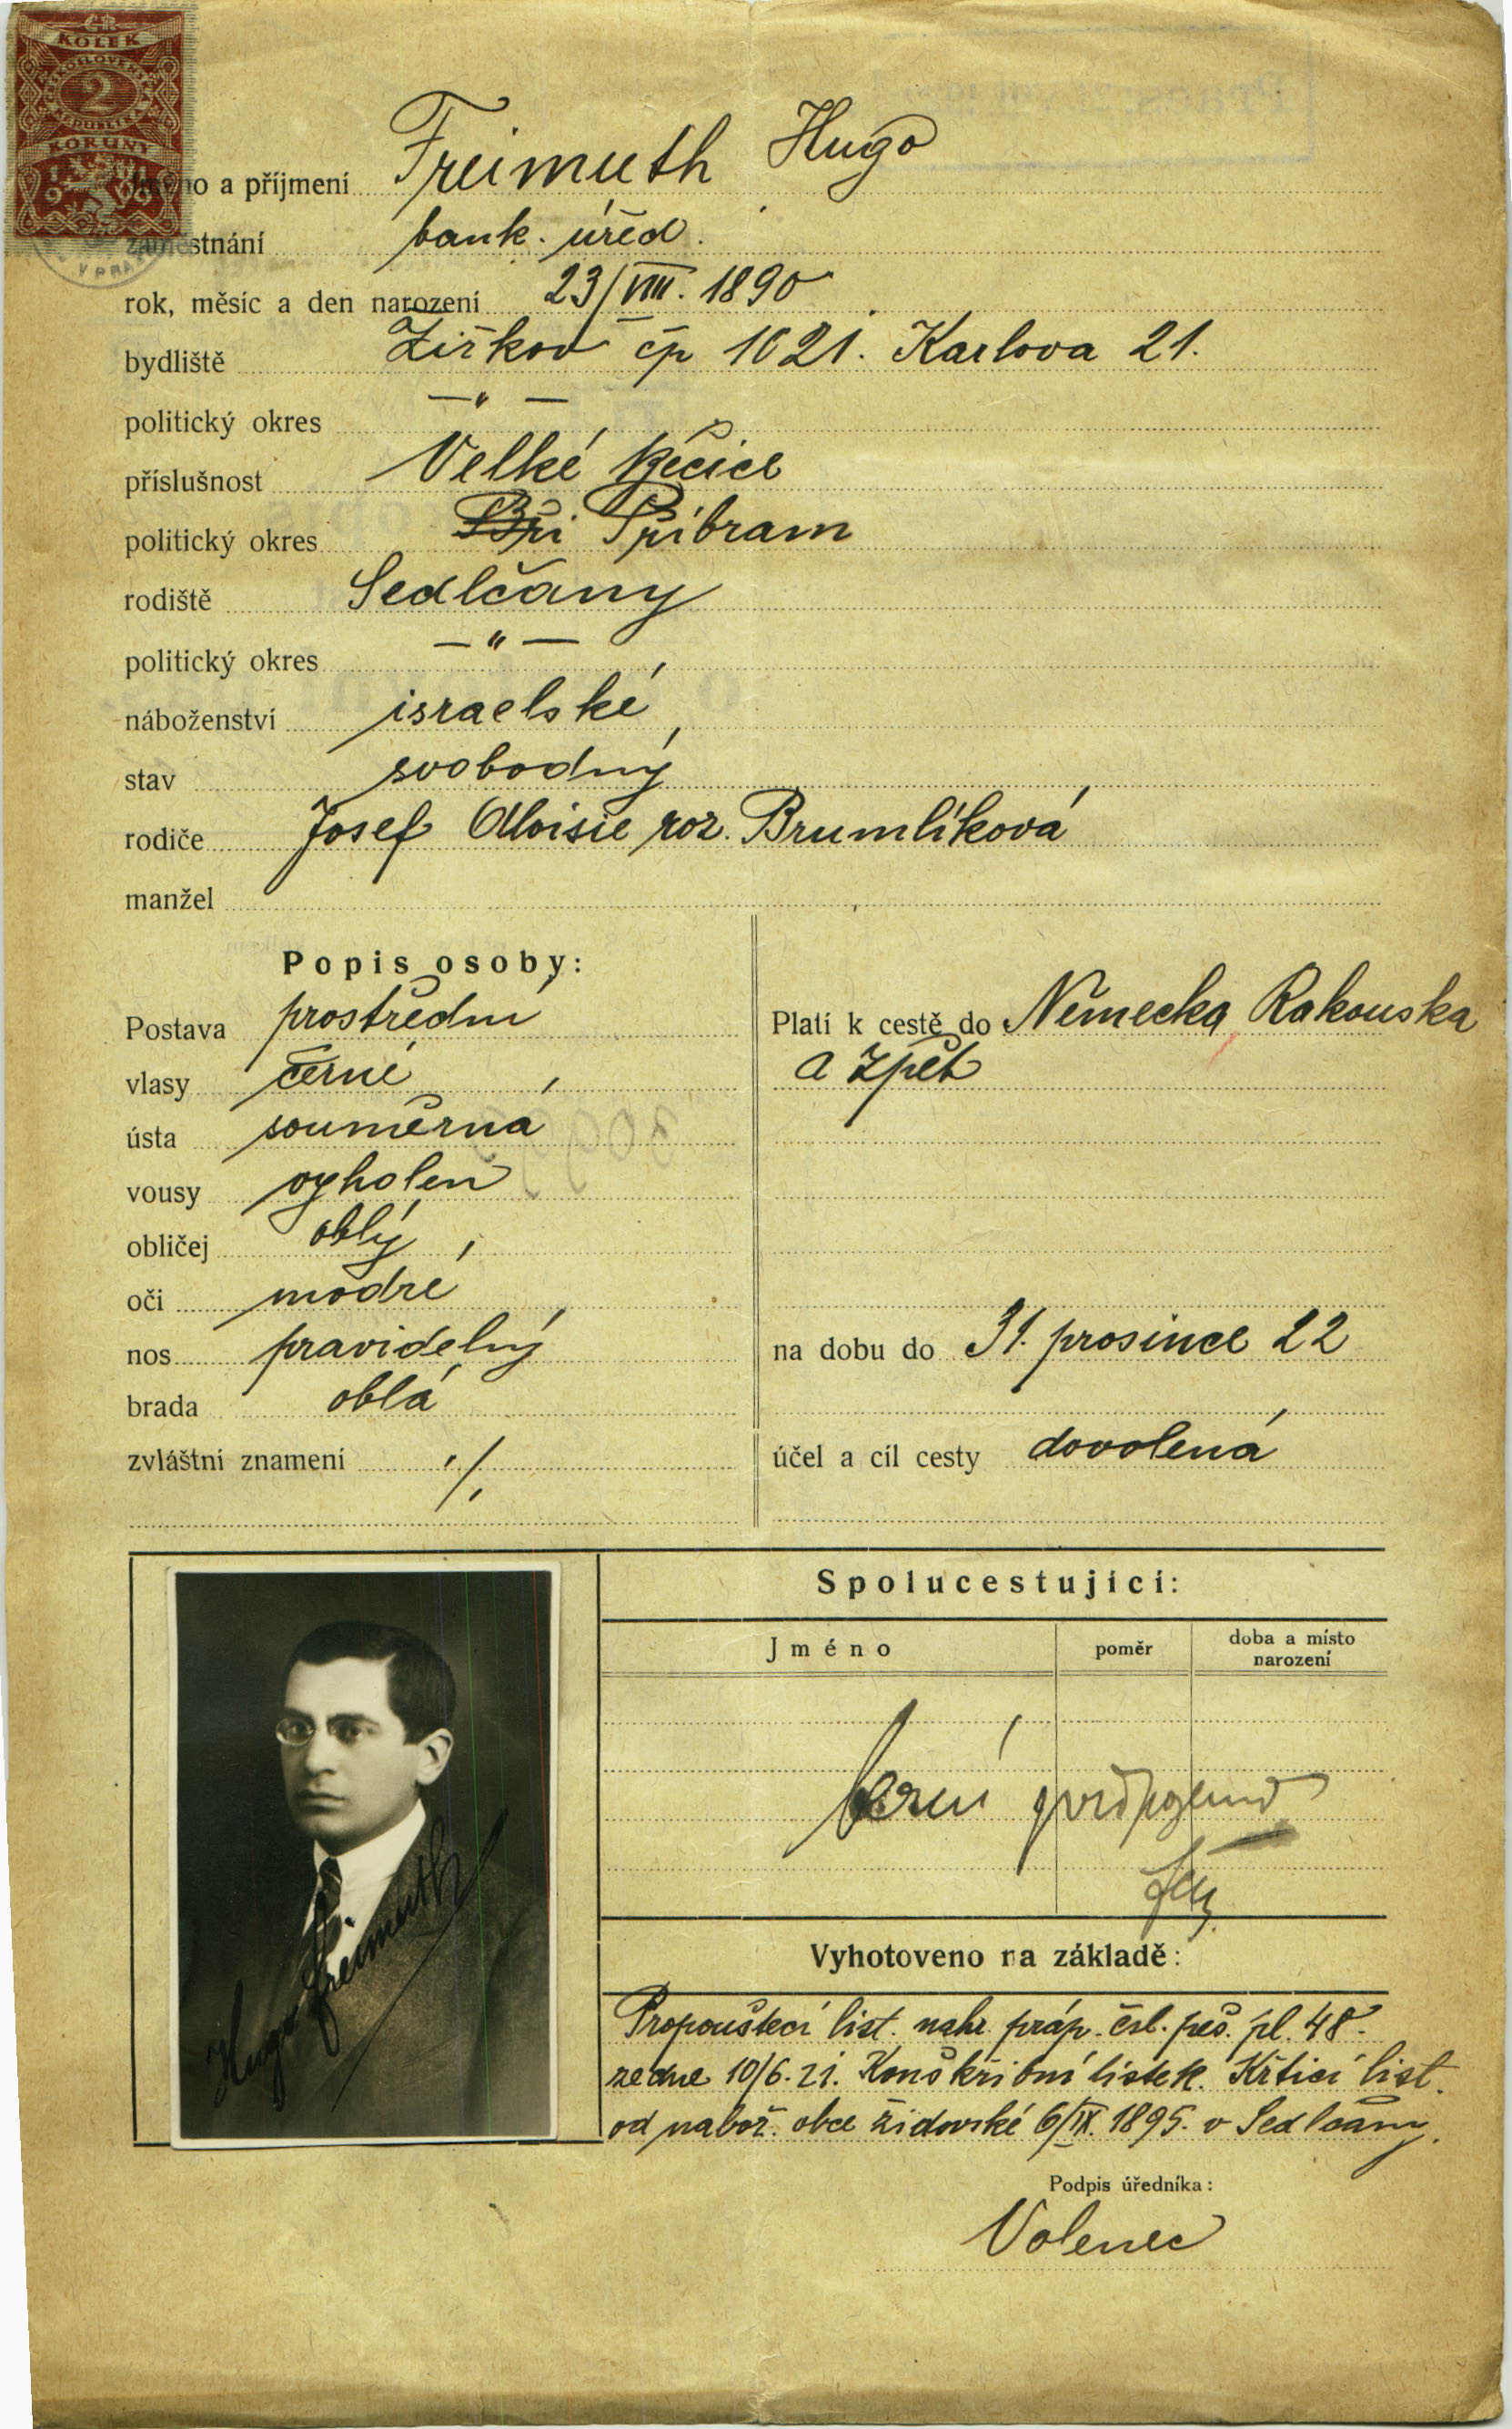 ČR
KOLEK
ČESKOSLOVENSKÁ
2
REPUBLIKA
KORUNY
19
V PRAZE
Jméno a příjmení Freimuth Hugo
zaměstnání bank. úřed.
rok, měsíc a den narození 23/VIII. 1890
bydliště Žižkov čp 1021. Karlova 21.
politický okres —"—
příslušnost Velké
politický okres Při Příbram
rodiště Sedlčany
politický okres —"—
náboženství israelské
stav svobodný
rodiče Josef Aloisie roz. Brumlíková
manžel
Popis osoby:
Postava prostřední
vlasy černé
ústa souměrná
vousy vyholen
obličej oblý
oči modré
nos pravidelný
brada oblá
zvláštní znamení ./.
Platí k cestě do Německa Rakouska
a zpět
na dobu do 31. prosince 22
účel a cíl cesty dovolená
Spolucestující:
Jméno poměr doba a místo narození
Hugo Freimuth
Vyhotoveno na základě:
Propouštecí list. nahr. práp. čsl. peš. pl. 48.
ze dne 10/6. 21. Konškribní lístek. Křticí list.
od nabož. obce židovské 6/IX. 1895. v Sedlčany.
Podpis úředníka:
Volenec